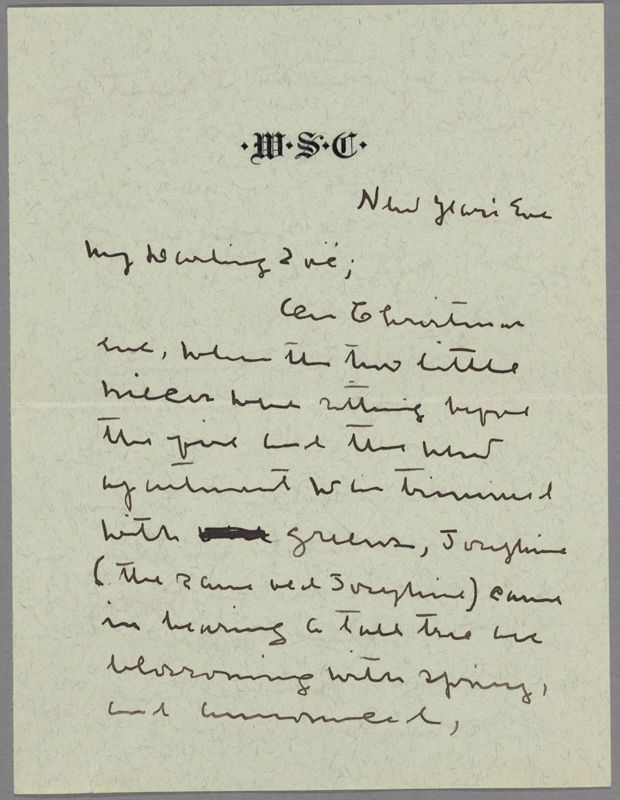 ·W·S·C·
New Year's Eve
My Darling Zoë;
On Christmas
eve, when the two little
nieces were sitting before
the fire and the new
apartment was trimmed
with greens, Josephine
(the same old Josephine) came
in bearing a tall tree all
blossoming with spring,
and announced,